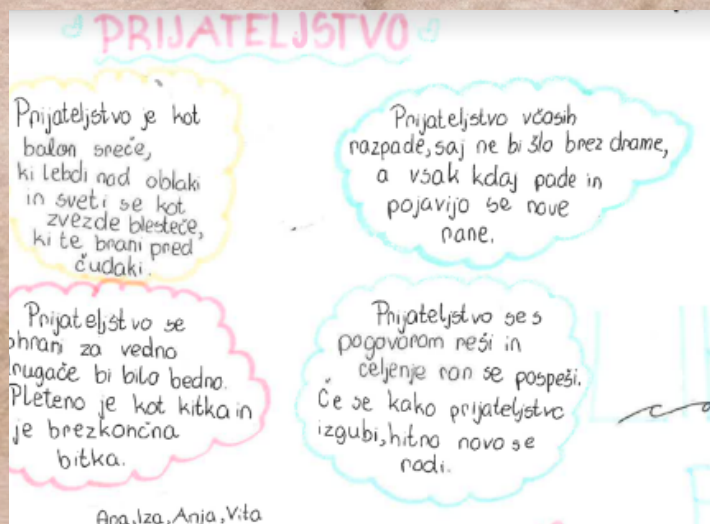 PRIJATELJSTVO
Prijateljstvo je kot
balon sreče,
ki lebdi nad oblaki
in sveti se kot
zvezde blesteče,
ki te brani pred
čudaki.
Prijateljstvo včasih
razpade, saj ne bi šlo brez drame,
a vsak kdaj pade in
pojavijo se nove
rane.
Prijateljstvo se
ohrani za vedno
rugače bi bilo bedno.
Pleteno je kot kitka in
je brezkončna
bitka.
Prijateljstvo se s
pogovorom reši in
celjenje ran se pospeši.
Če se kako prijateljstvo
izgubi, hitro novo se
rodi.
Ana, Iza, Anja, Vita